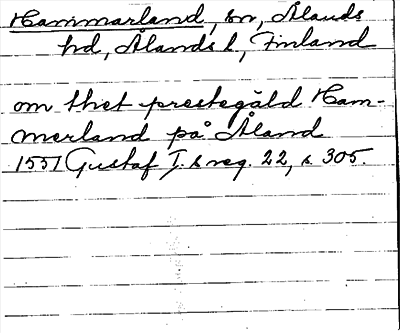 Hammarland, sn, Ålands
hd, Ålands l, Finland
om thet prestegäld Ham-
merland på Åland
1551 Gustaf I:s reg. 22, s. 305.